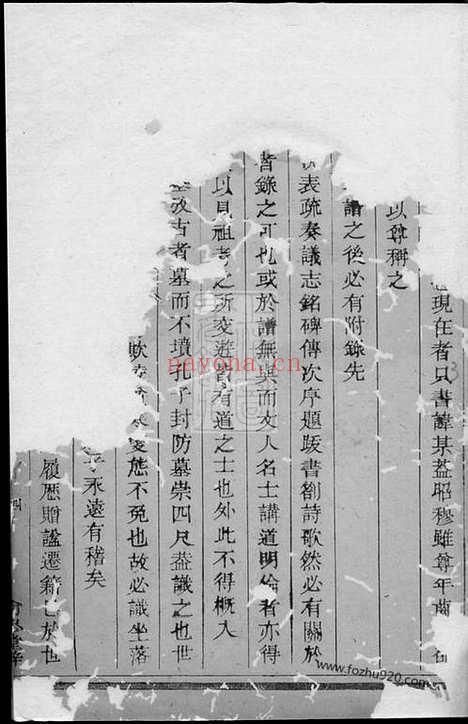 現在者只書諱某蓋昭穆雖尊年齒
以尊稱之
譜之後必有附錄先
表疏奏議志銘碑傳次序題跋書劄詩歌然必有關於
皆錄之可也或於譜無與而文人名士講道明倫者亦得
以見祖考之所交遊皆有道之士也外此不得概入
攷古者墓而不墳孔子封防墓崇四尺蓋識之也世
變態不免也故必識坐落
永遠有稽矣
履歷贈諡遷籍已於世
nayona.cn
www.fozhu920.com